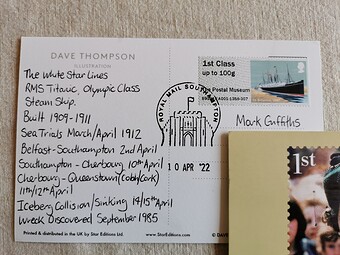 DAVE THOMPSON
ILLUSTRATION
The White Star Lines
RMS Titanic, Olympic Class
Steam Ship.
Built 1909-1911
Sea Trials March/April 1912
Belfast-Southampton 2nd April
Southampton - Cherbourg 10th April
Cherbourg-Queenstown (Cobh/Cork)
11th/12th April
Iceberg Collision/Sinking 14/15th April
Wreck Discovered September 1985
Printed & distributed in the UK by Star Editions Ltd.
www.StarEditions.com
© DAVE
1st Class
up to 100g
Postal Museum
ROYAL MAIL SOUTHAMPTON
10 APR '22
Mark Griffiths
1st